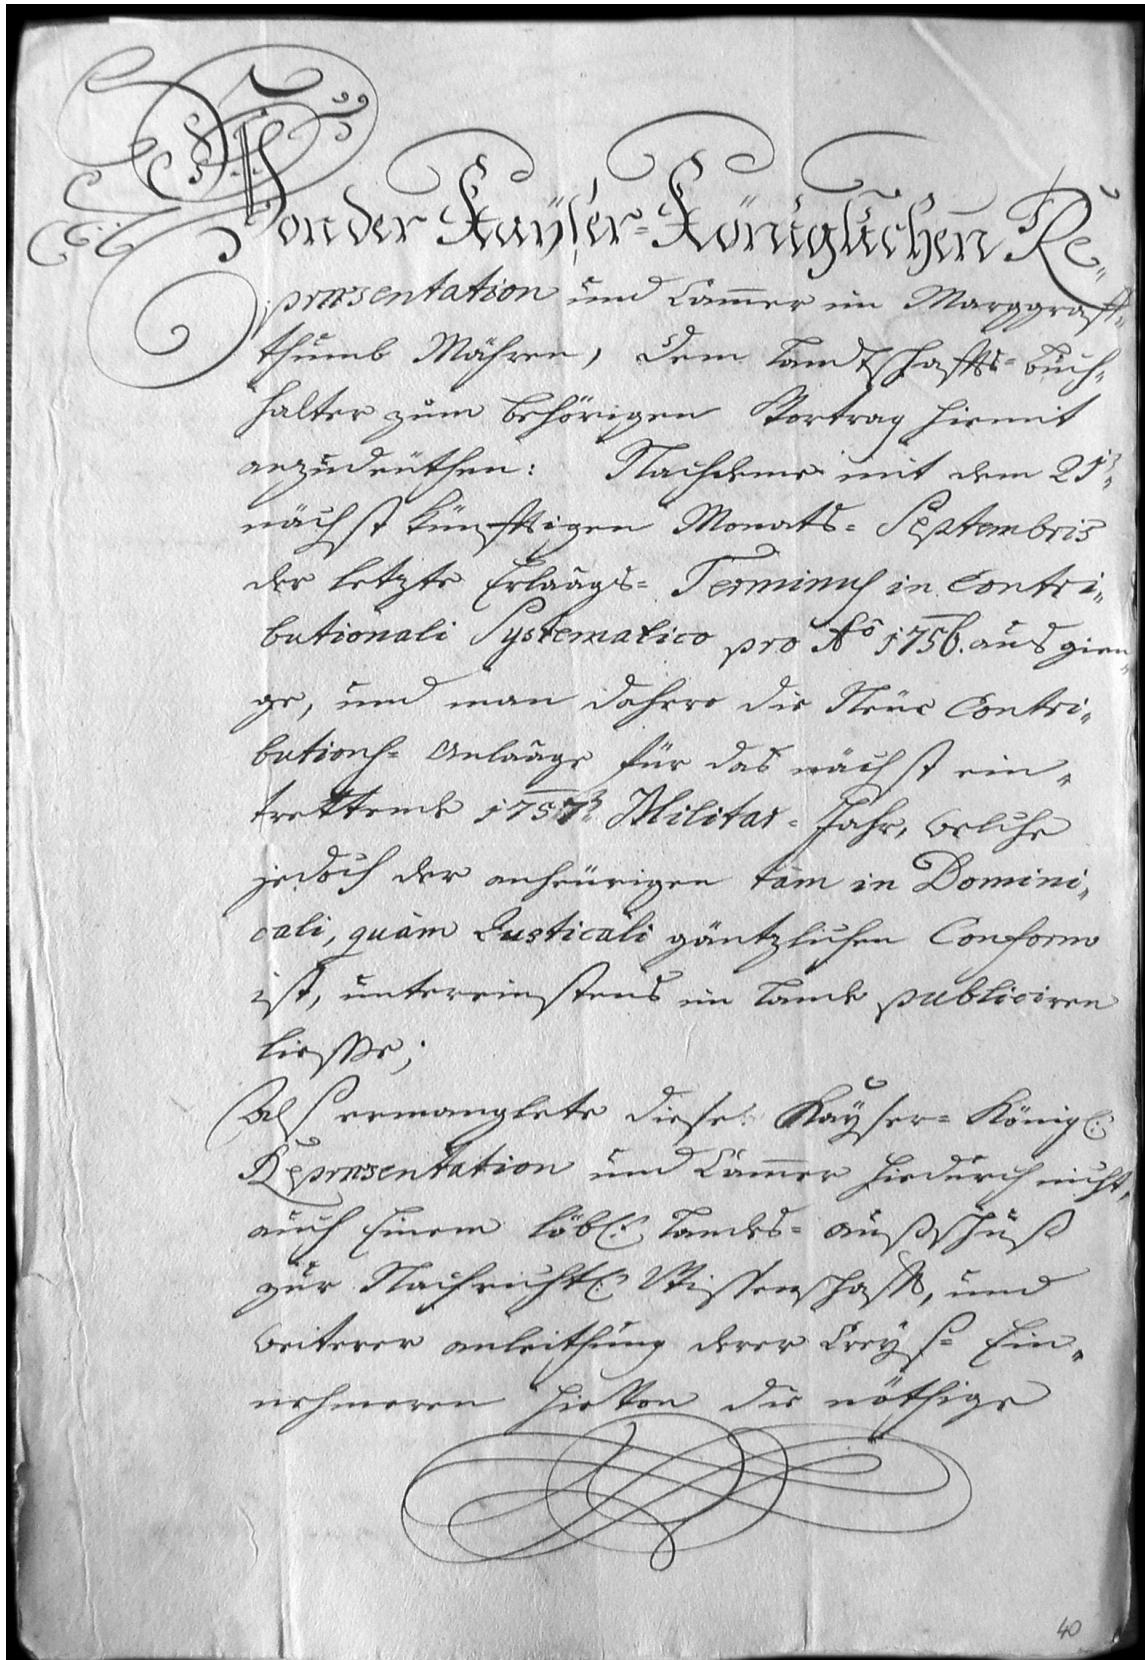 Von der Kaÿser-Königlichen Re„
præsentation und Cammer im Marggraff„
thumb Mähren, dem Landschaffts-Buch„
halter zum behörigen Vortrag hiemit
anzudeüthen: Nachdeme mit dem
nächst künfftigen Monats-Septembris
der letzte Erlaags-Terminus in Contri„
butionali Systematico pro Aõ 1756. aus gien„
ge, und man dahero die Neüe Contri„
butions-Anlaage für das nächst ein„
trettende 1757 Militar-Jahr, welche
jedoch der anheürigen tàm in Domini„
cali, quàm Rusticali gäntzlichen Conform
ist, untereinstens im Lande publiciren
liesse;
Als ermanglete diese Kaÿser-Königl:
Repræsentation und Cammer hiedurch nicht,
auch Einem löbl: Landes-Außschuß
zur Nachrichtl: Wissenschafft, und
weiterer anleithung derer Creÿs-Ein„
nehmeren hieVon die nöthige
40